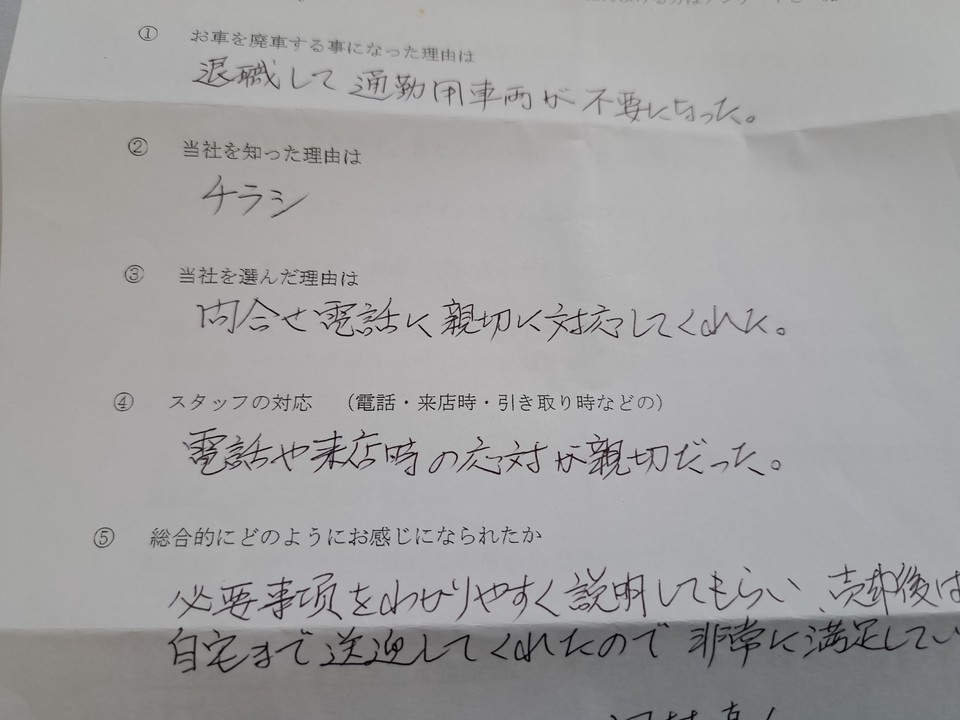 ① お車を廃車する事になった理由は
退職して通勤用車両が不要になった。
② 当社を知った理由は
チラシ
③ 当社を選んだ理由は
問合せ電話に親切に対応してくれた。
④ スタッフの対応 （電話・来店時・引き取り時などの）
電話や来店時の応対が親切だった。
⑤ 総合的にどのようにお感じになられたか
必要事項をわかりやすく説明してもらい、売却後は
自宅まで送迎してくれたので非常に満足してい